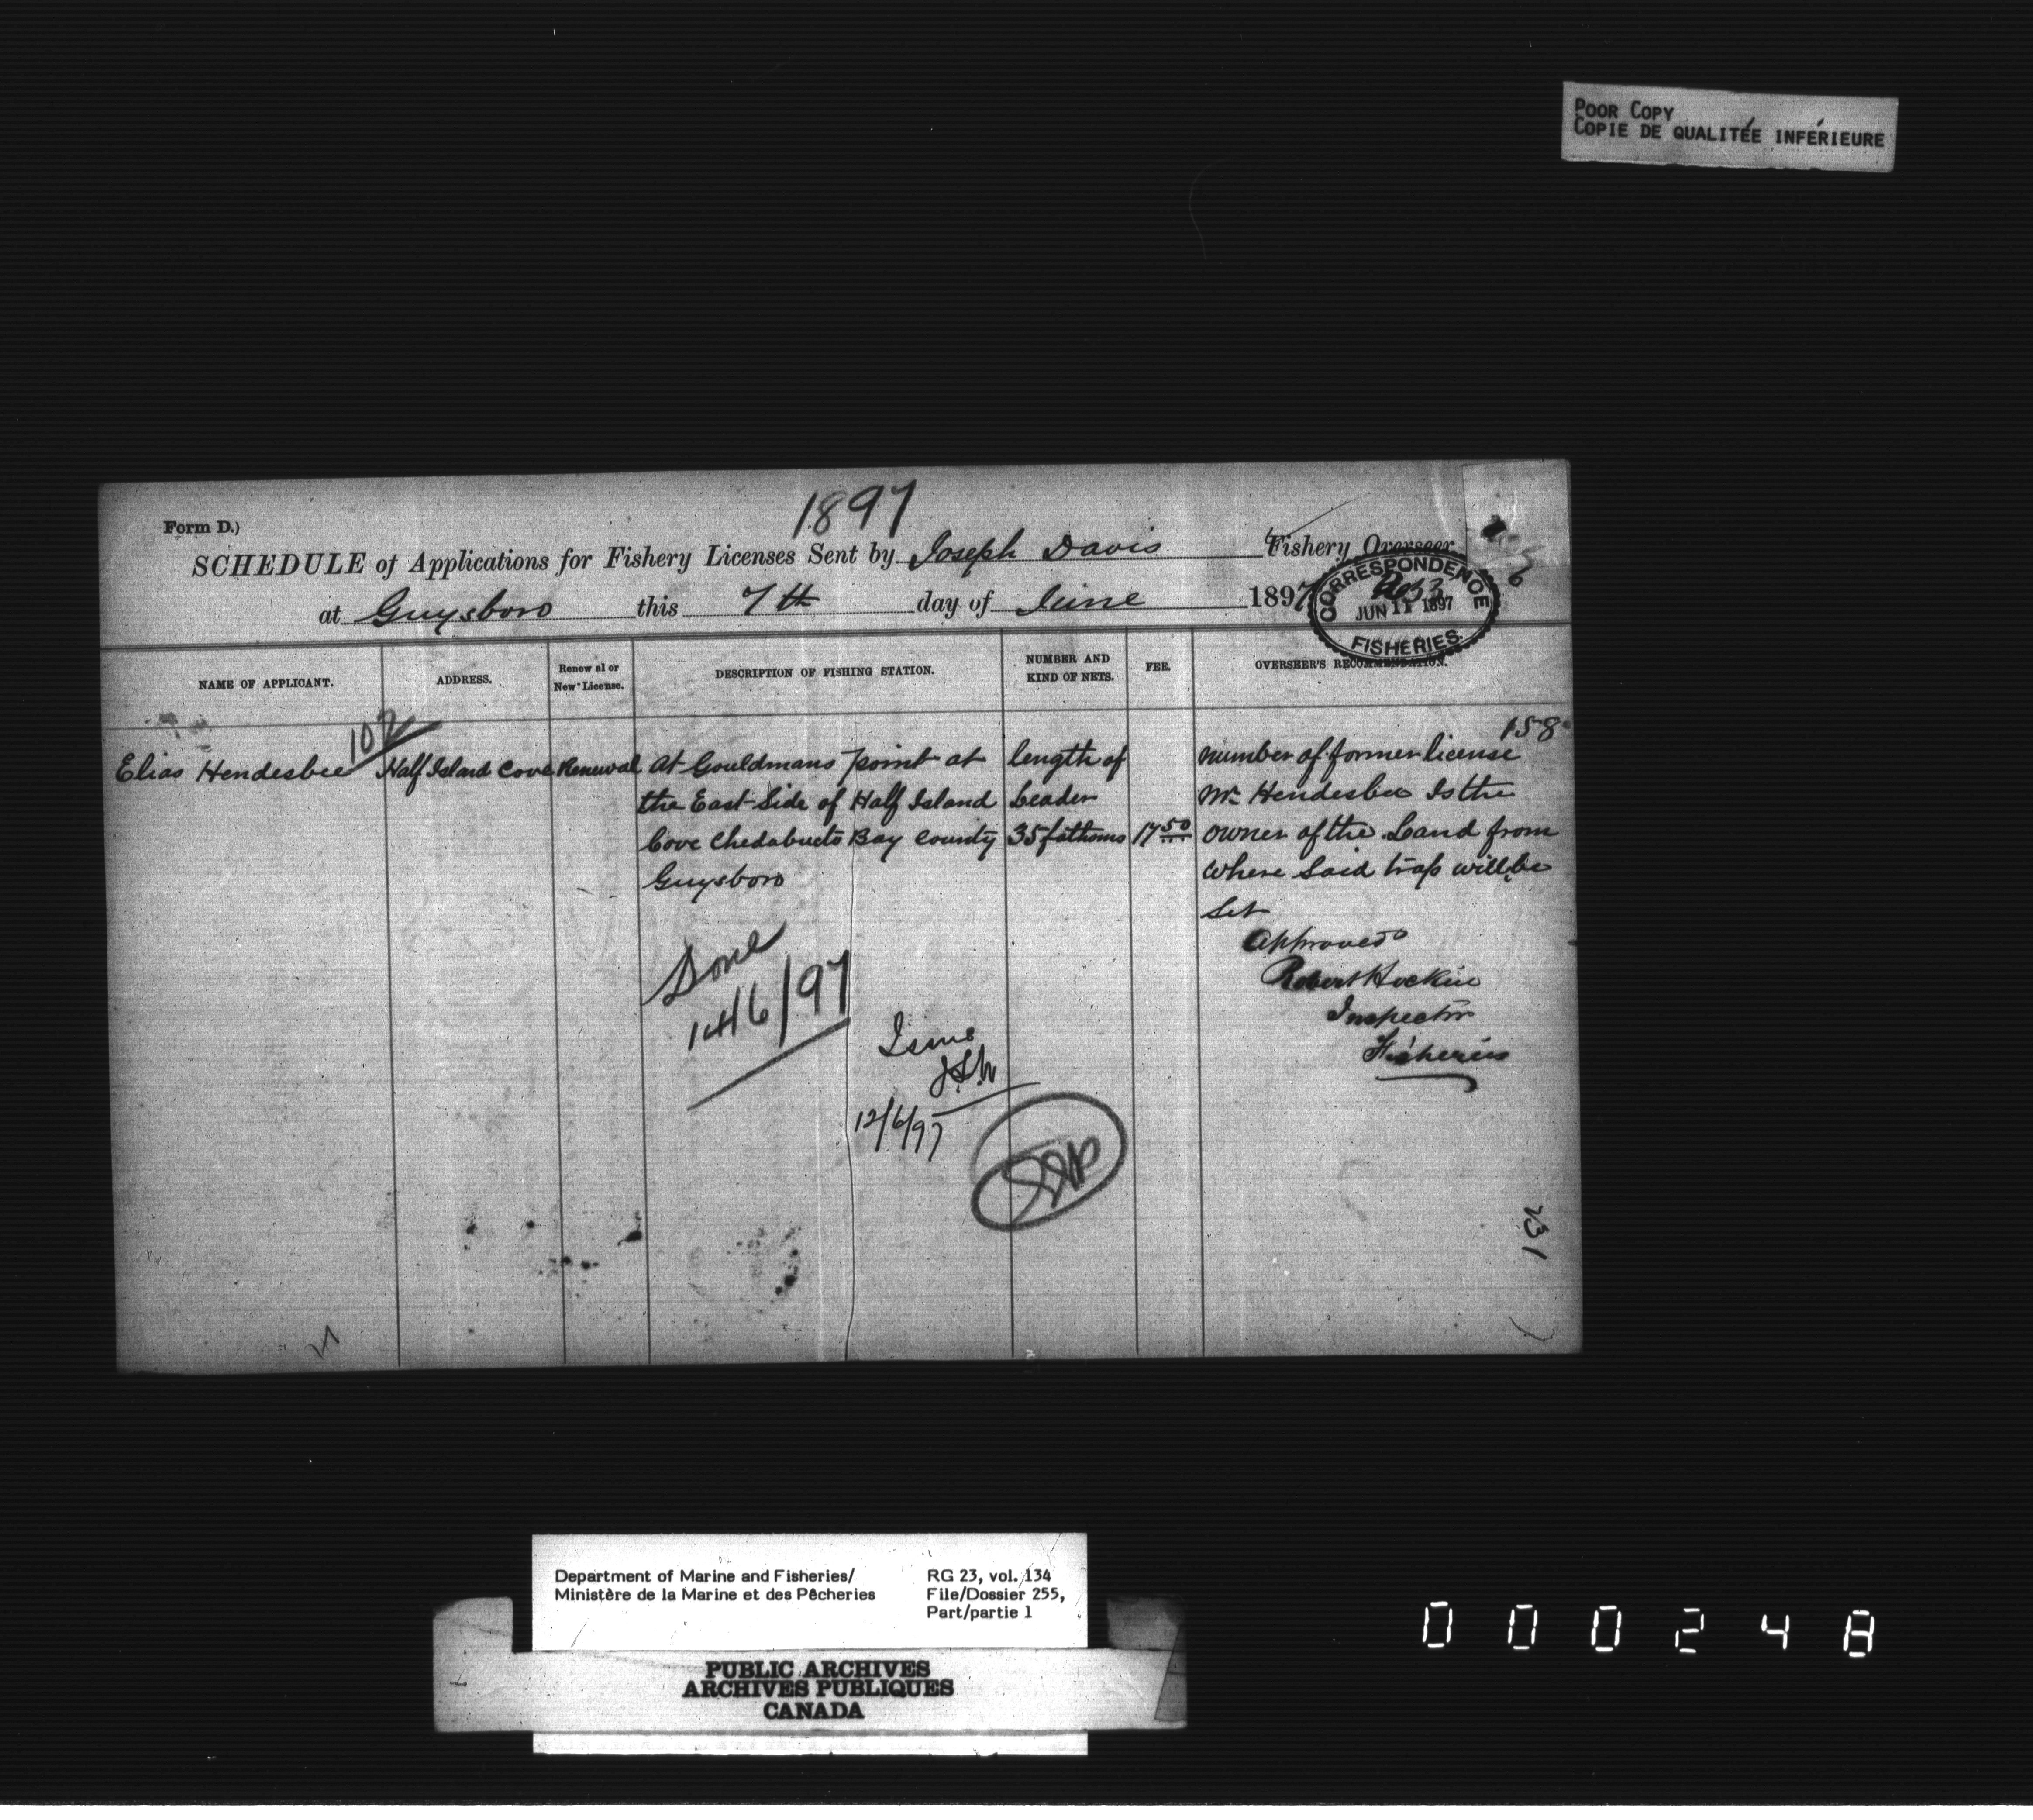 POOR COPY
COPIE DE QUALITÉE INFÉRIEURE
1897
Form D.)
SCHEDULE of Applications for Fishery Licenses Sent by Joseph Davis Fishery Overseer
at Guysboro this 7th day of June 1897
CORRESPONDENCE
JUN 11 1897
FISHERIES.
NAME OF APPLICANT. ADDRESS. Renewal or New License. DESCRIPTION OF FISHING STATION. NUMBER AND KIND OF NETS. FEE. OVERSEER'S RECOMMENDATION.
102
158
Elias Hendesbee Half Island Cove Renewal At Gouldmans point at length of number of former license
the East Side of Half Island Leader Mr Hendesbee Is the
Cove Chedabucto Bay County 35 fathoms 17 50 owner of the Land from
Guysboro where Said trap will be
Set
Approved
Robert Hockin
Inspector
Fisheries
Done
14/6/97
Issue
12/6/97
231
Department of Marine and Fisheries/ RG 23, vol. 134
Ministère de la Marine et des Pêcheries File/Dossier 255,
Part/partie 1
PUBLIC ARCHIVES
ARCHIVES PUBLIQUES
CANADA
000248